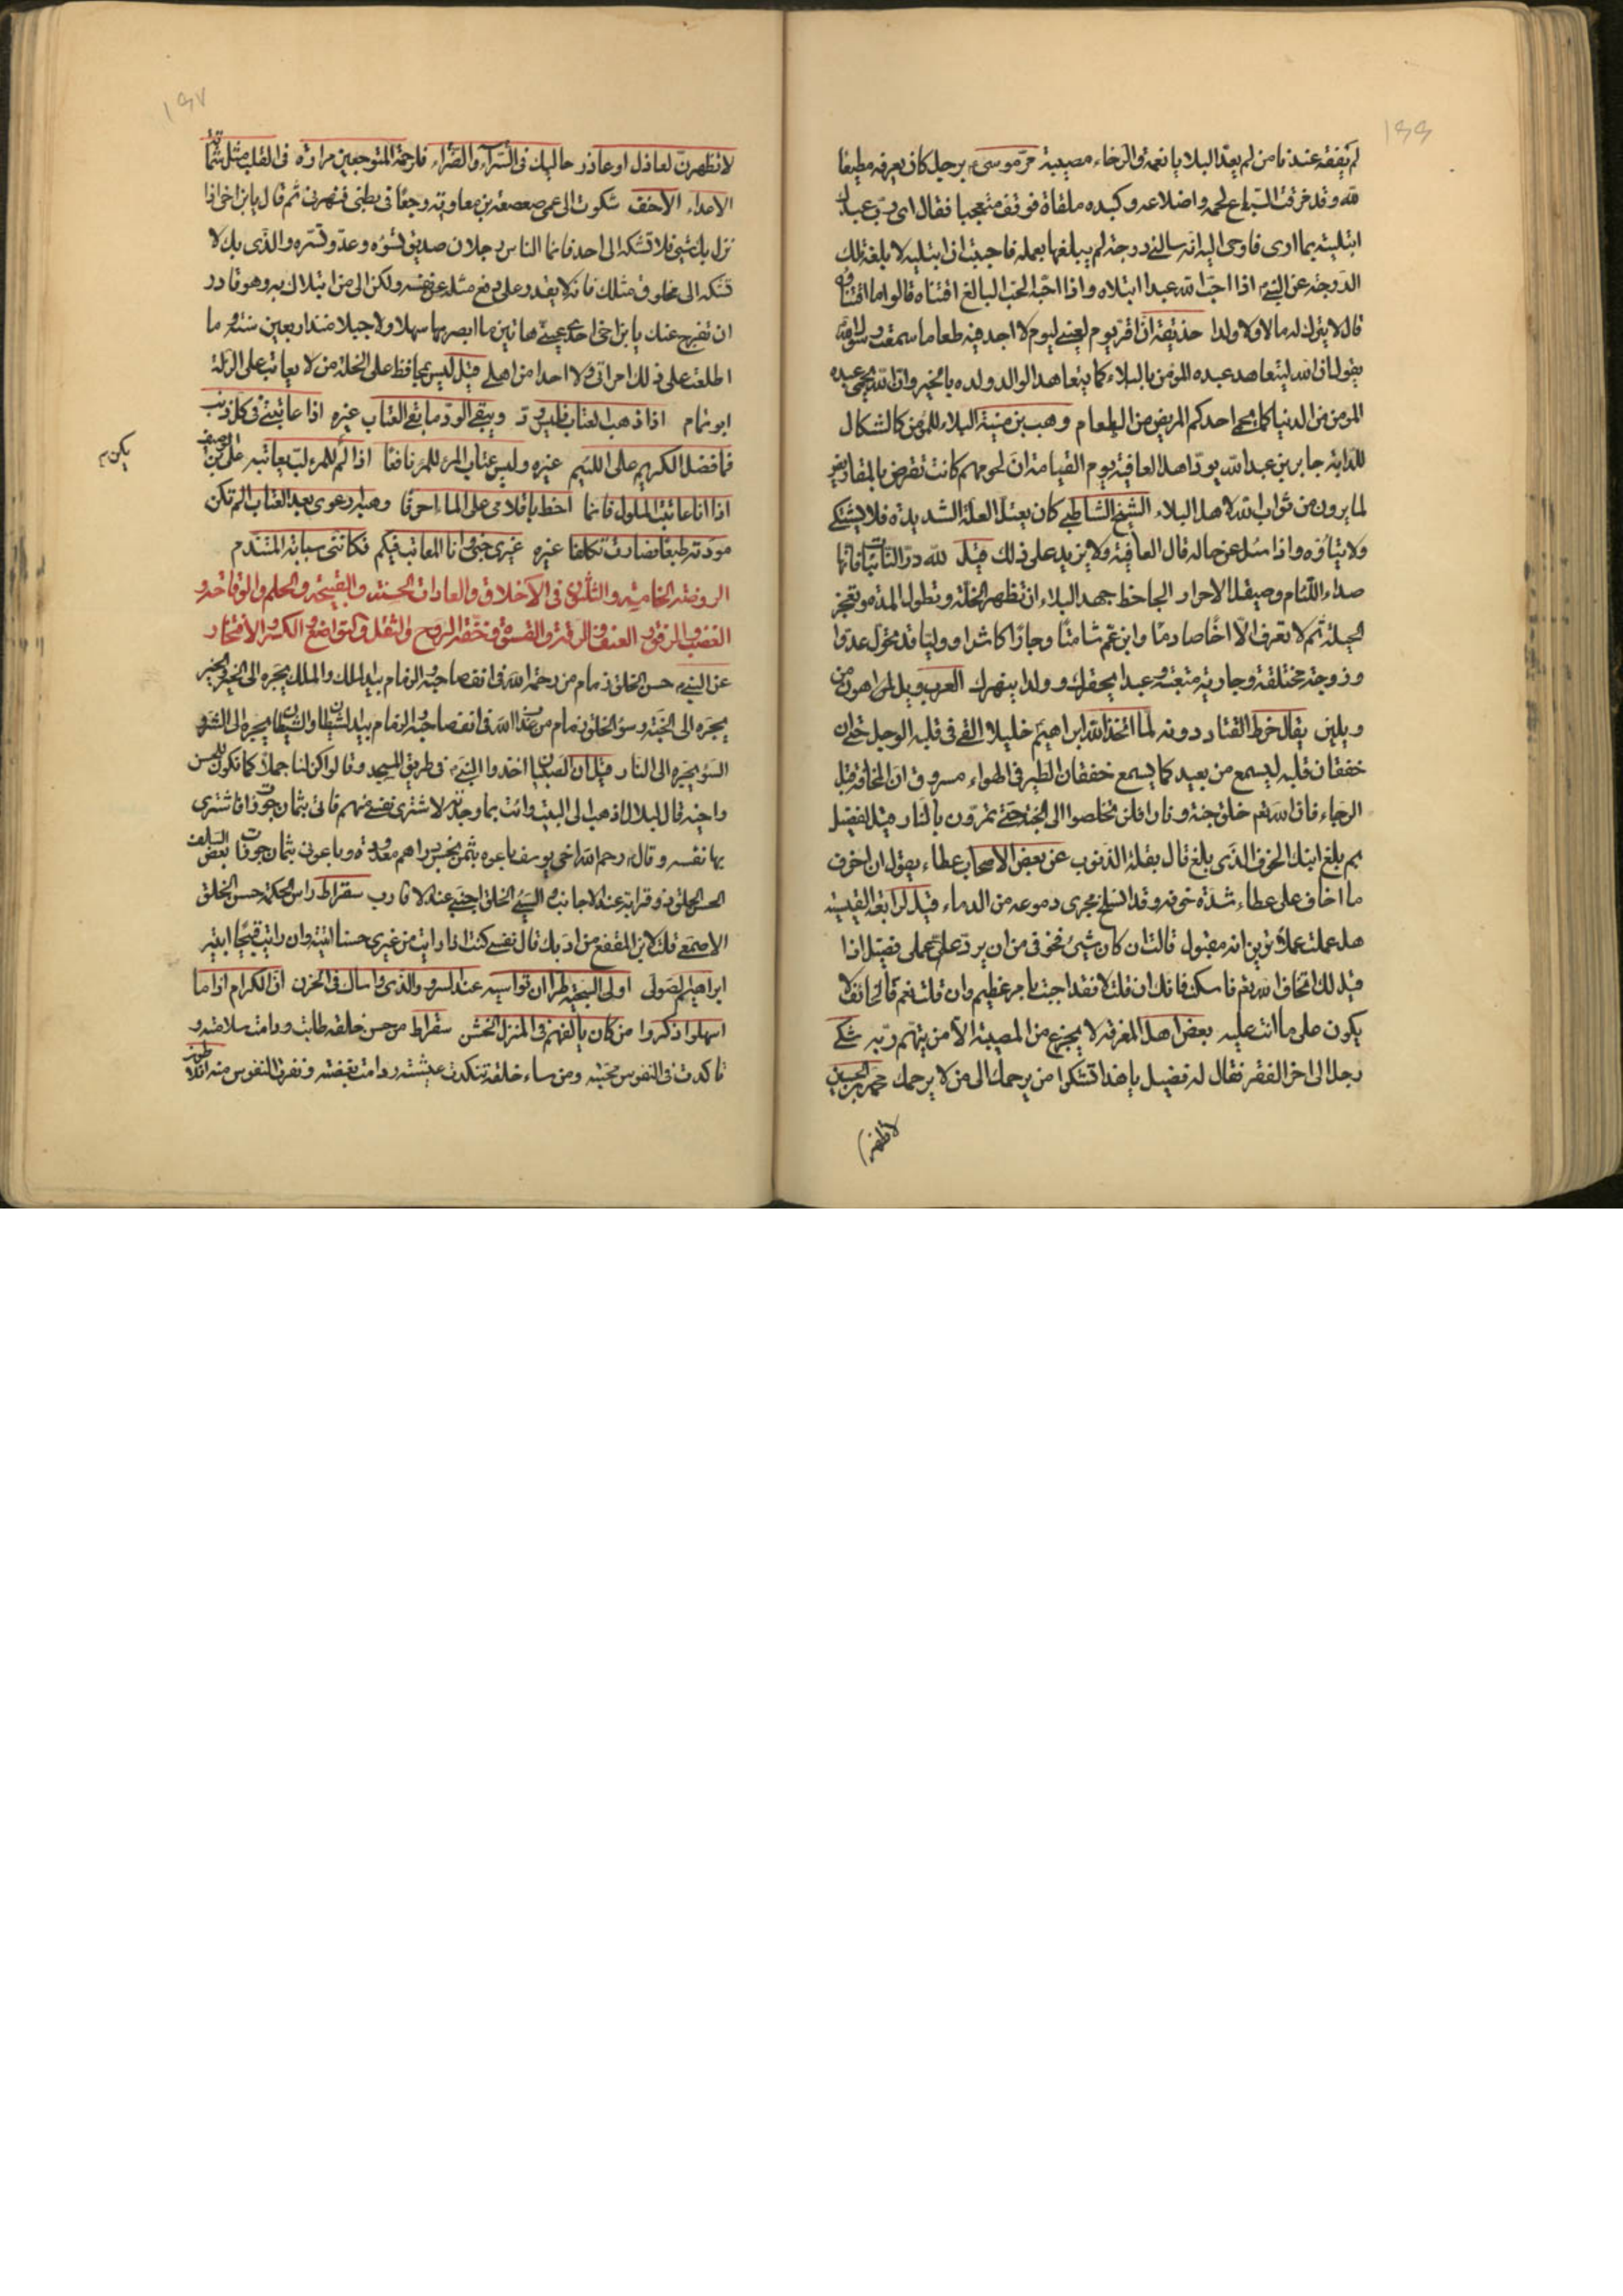 ١٦٦
لم يتفقه عندنا من لم يعدّ البلايا نعمة والرخاء مصيبة مرّ موسى ع برجل كان يعرفه مطيعا
لله وقد مزقت السباع لحمه واضلاعه وكبده ملقاة فوقف متعجبا فقال اى رب عبدك
ابتليته بما ارى فاوحى اليه انه سالنى درجة لم يبلغها بعمله فاحببت ان ابتليه لابلغه تلك
الدرجة عن النبى ع اذا احبّ الله عبدا ابتلاه واذا احبّه الحب البالغ اقتناه قالوا ما اقتناؤه
قال لا يترك له مالا ولا ولدا حذيفة ان اقرّ يوم لعينى ليوم لا اجد فيه طعاما سمعت رسول الله
يقول ان الله ليتعاهد عبده المؤمن بالبلاء كما يتعاهد الوالد ولده بالخير وان الله ليحمى عبده
المؤمن من الدنيا كما يحمى احدكم المريض من الطعام وهب بن منبه البلاء للمؤمن كالشكال
للدابة جابر بن عبدالله يودّ اهل العافية يوم القيامة انّ لحومهم كانت تقرض بالمقاريض
لما يرون من ثواب الله لاهل البلاء الشيخ الشاطبى كان يعتلّ العلة الشديدة فلا يشتكى
ولا يتاوّه واذا سئل عن حاله قال العافية ولا يزيد على ذلك قيل لله درّ النائبات فانها
صداء اللئام وصيقل الاحرار الجاحظ جهد البلاء ان تظهر الخلّة وتطول المدة وتعجز
الحيلة ثم لا تعرف الّا اخًا صارمًا وابن عمّ شامتًا وجارًا كاشرا ووليّا قد تحوّل عدوّا
وزوجة مختلقة وجارية متبعة وعبدا يحقرك وولدا ينهرك العرب ويل اهون من
ويلين يقال خرط القتاد دونه لما اتخذ الله ابراهيم خليلا القى فى قلبه الوجل حتى ان
خفقان قلبه ليسمع من بعيد كما يسمع خفقان الطير فى الهواء مسروق انّ المخافة قبل
الرجاء فان الله تعم خلق جنة ونارا فلن تخلصوا الى الجنة حتى تمرّون بالنار قيل لفضيل
بم بلغ ابنك الخوف الذى بلغ قال بقلة الذنوب عن بعض الاصحاب عطاء يقول ان اخوف
ما اخاف على عطاء شدة خوفه وقد انسلخ مجرى دموعه من الدماء قيل لرابعة القيسية
هل عملت عملا ترين انه مقبول قالت ان كان شيئ فخوفى من ان يردّ علىّ عملى فضيل اذا
قيل لك اتخاف الله تعم فاسكت فانك ان قلت لا فقد اجبت بامر عظيم وان قلت نعم فالخائف لا
يكون على ما انت عليه بعض اهل المعرفة لا يجزع من المصيبة الّا من يتهم ربّه شكى
رجل الى اخر الفقر فقال له فضيل يا هذا تشكوا من يرحمك الى من لا يرحمك محمد بن الحسين
لا تظهرن
١٦٧
لا تظهرنّ لعاذل او عاذر حاليك فى السّراء والضّراء فلرحمة المتوجعين مرارة فى القلب مثل شماتة
الاعداء الاحنف شكوت الى عمى صعصعة بن معاوية وجعًا فى بطنى فنهرنى ثم قال يا بن اخى اذا
نزل بك شيئ فلا تشكه الى احد فانما الناس رجلان صديق تسوءه وعدو تسرّه والذى بك لا
تشكه الى مخلوق مثلك فانه لا يقدر على دفع مثله عن نفسه ولكن الى من ابتلاك به وهو قادر
ان يفرج عنك يا بن اخى احدى عينىّ هاتين ما ابصر بها سهلا ولا جبلا منذ اربعين سنة وما
اطلعت على ذلك امراتى ولا احدا من اهلى قيل ليس يحافظ على الخلّة من لا يعاتب على الزلّة
ابو تمام اذا ذهب العتاب فليس ودّ ويبقى الود ما بقى العتاب غيره اذا عاتبتنى فى كل ذنب
فما فضل الكريم على اللئيم غيره وليس عتاب المرء للمرء نافعًا اذا لم للمرء لبّ يعاتبه
يكن
اذا انا عاتبت الملول فانما اخط باقلامى على الماء احرفا وهبه ارعوى بعد العتاب الم تكن
مودته طبعًا فصارت تكلفا غيره غيرى جنى وانا المعاتب فيكم فكاننى سبابة المتندم
الروضة الخامسة والثلثون فى الاخلاق والعادات الحسنة والقبيحة والحلم والوقاحة و
الغضب والرفق والعنف والرقة والقسوة وخفة الروح والثقل والتواضع والكبر والافتخار
عن النبى ع حسن الخلق زمام من رحمة الله فى انف صاحبه والزمام بيد الملك والملك يجرّه الى الخير والخير
يجرّه الى الجنة وسوء الخلق زمام من عذاب الله فى انف صاحبه والزمام بيد الشيطان والشيطان يجرّه الى الشرّ و
السوء يجرّه الى النار قيل ان الصبيان اخذوا النبى ع فى طريق المسجد وقالوا كن لنا جملًا كما تكون للحسن
واخيه قال لبلال اذهب الى البيت وائت بما وجدته لاشترى نفسى منهم فاتى بثمان جوزات فاشترى
بها نفسه وقال رحم الله اخى يوسف باعوه بثمن بخس دراهم معدودة وباعونى بثمان جوزات بعض السلف
الحسن الخلق ذو قرابة عند الاجانب والسيّئ الخلق اجنبى عند الاقارب سقراط راس الحكمة حسن الخلق
الاصمعى قلت لابن المقفع من ادّبك قال نفسى كنت اذا رايت من غيرى حسنا اتيته وان رايت قبيحًا ابيته
ابراهيم الصولى اولى البرية طرا ان تواسيه عند السرور والذى واساك فى الحزن انّ الكرام اذا ما
اسهلوا ذكروا من كان يالفهم فى المنزل الخشن سقراط من حسن خلقه طابت ودامت سلامته و
تاكدت فى النفوس محبّته ومن ساء خلقه تنكدت عيشته ودامت بغضته ونفرت النفوس منه